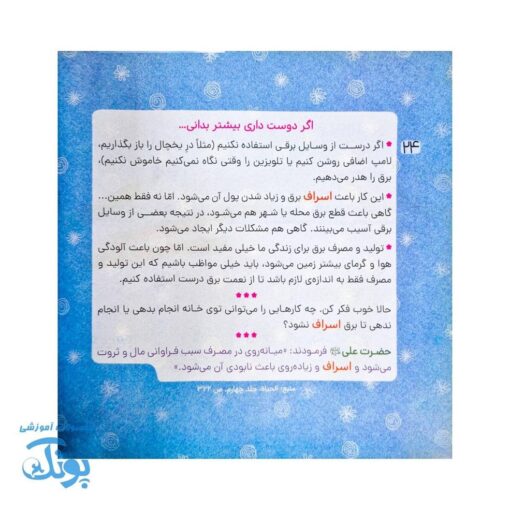 اگر دوست داری بیشتر بدانی...
۲۴
* اگر درست از وسایل برقی استفاده نکنیم (مثلاً درِ یخچال را باز بگذاریم،
لامپ اضافی روشن کنیم یا تلویزین را وقتی نگاه نمی‌کنیم خاموش نکنیم)،
برق را هدر می‌دهیم.
* این کار باعث اسراف برق و زیاد شدن پول آن می‌شود. امّا نه فقط همین...
گاهی باعث قطع برق محله یا شهر هم می‌شود، در نتیجه بعضی از وسایل
برقی آسیب می‌بینند. گاهی هم مشکلات دیگر ایجاد می‌شود.
* تولید و مصرف برق برای زندگی ما خیلی مفید است. امّا چون باعث آلودگی
هوا و گرمای بیشتر زمین می‌شود، باید خیلی مواظب باشیم که این تولید و
مصرف فقط به اندازه‌ی لازم باشد تا از نعمت برق درست استفاده کنیم.
***
حالا خوب فکر کن. چه کارهایی را می‌توانی توی خانه انجام بدهی یا انجام
ندهی تا برق اسراف نشود؟
***
حضرت علی فرمودند: «میانه‌روی در مصرف سبب فراوانی مال و ثروت
می‌شود و اسراف و زیاده‌روی باعث نابودی آن می‌شود.»
منبع: الحیاة، جلد چهارم، ص ۳۲۲
آموزشی
پونک